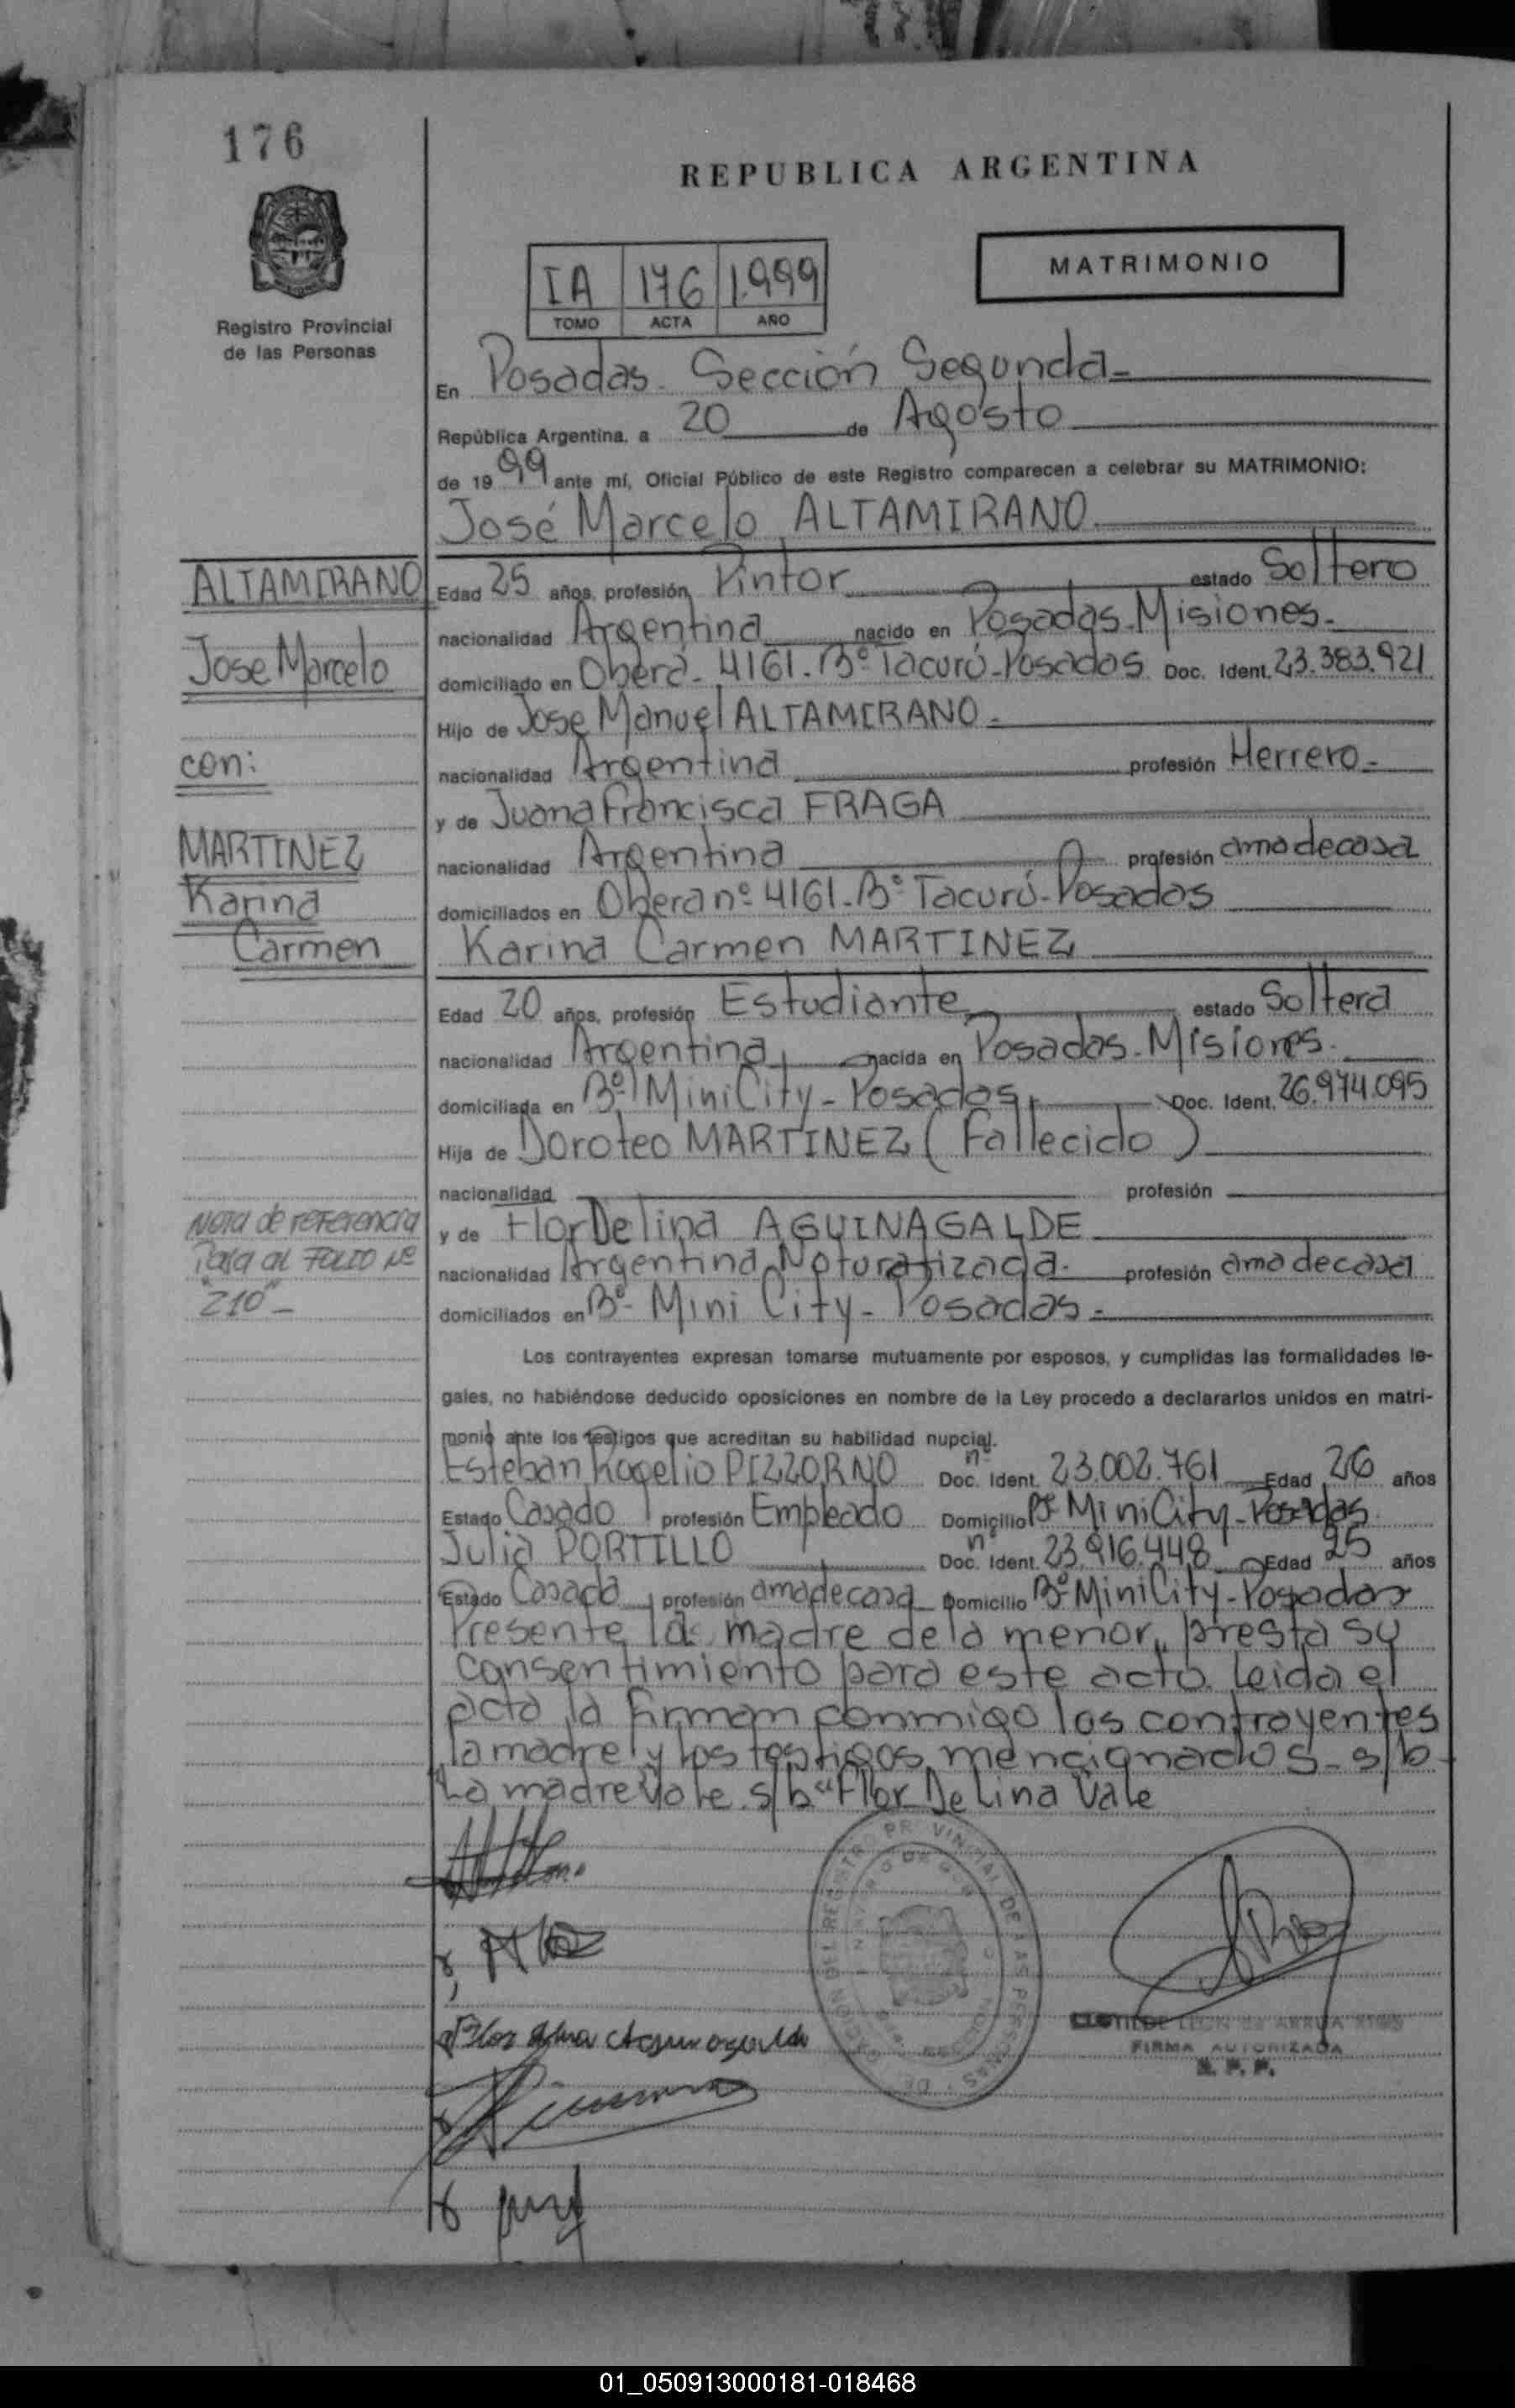 176
REPUBLICA ARGENTINA
MATRIMONIO
IA 176 1.999
TOMO ACTA AÑO
Registro Provincial
de las Personas
En Posadas. Sección Segunda-
República Argentina, a 20 de Agosto
de 1999 ante mí, Oficial Público de este Registro comparecen a celebrar su MATRIMONIO:
José Marcelo ALTAMIRANO
ALTAMIRANO
Jose Marcelo
con:
MARTINEZ
Karina
Carmen
Edad 25 años, profesión Pintor estado Soltero
nacionalidad Argentina nacido en Posadas-Misiones-
domiciliado en Oberá- 4161-Bº Tacurú-Posadas Doc. Ident. 23.383.921
Hijo de Jose Manuel ALTAMIRANO-
nacionalidad Argentina profesión Herrero-
y de Juana Francisca FRAGA
nacionalidad Argentina profesión ama de casa
domiciliados en Obera nº 4161-Bº Tacurú-Posadas
Karina Carmen MARTINEZ
Edad 20 años, profesión Estudiante estado Soltera
nacionalidad Argentina nacida en Posadas-Misiones-
domiciliada en Bº MiniCity-Posadas Doc. Ident. 26.974.095
Hija de Doroteo MARTINEZ (Fallecido)
nacionalidad profesión
y de FlorDelina AGUINAGALDE
nacionalidad Argentina Naturalizada- profesión ama de casa
domiciliados en Bº- Mini City-Posadas-
Nota de referencia
Pasa al FOLIO Nº
"210"-
Los contrayentes expresan tomarse mutuamente por esposos, y cumplidas las formalidades le-
gales, no habiéndose deducido oposiciones en nombre de la Ley procedo a declararlos unidos en matri-
monio ante los testigos que acreditan su habilidad nupcial.
Esteban Rogelio PIZZORNO Doc. Ident. nº 23.002.761 Edad 26 años
Estado Casado profesión Empleado Domicilio Bº MiniCity-Posadas
Julia PORTILLO Doc. Ident. nº 23.916.448 Edad 25 años
Estado Casada profesión ama de casa Domicilio Bº MiniCity-Posadas
Presente la madre de la menor, presta su
consentimiento para este acto. Leida el
acta la firman conmigo los contrayentes
la madre y los testigos mencionados- s/b
"La madre Vale. s/b "Flor De Lina Vale
FIRMA AUTORIZADA
R. P. P.
01_050913000181-018468